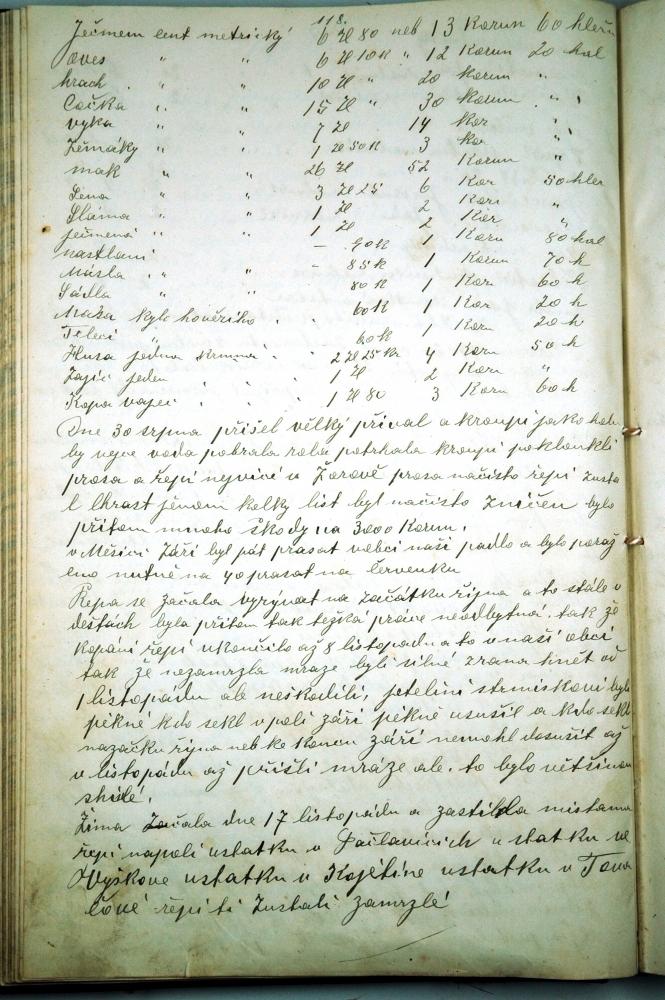 118.
Ječmem cent metrický 6 Zl 80 neb 13 Korun 60 hleru
oves " " 6 Zl 10 K " 12 Korun 20 hal
hrach . " " 10 Zl " 20 Korun "
Cočka " " 15 Zl " 30 Korun " "
vyka " " 7 Zl 14 Kor "
Zemáky " " 1 Zl 50 K 3 Kor "
mak " " 26 Zl 52 Korun "
Sena " " 3 Zl 25 6 Kor 50 hler
Sláma " " 1 Zl 2 Kor "
ječmená " " 1 Zl 2 Kor "
nastlaní — 90 K 1 Koru 80 hal
Másla " " — 85 K 1 Korun 70 h
Sádla " 80 K 1 Kor 60 h
Masa kylo hověziho . . 60 K 1 Kor 20 h
Teleci " 60 K 1 Koru 20 h
Husa jedna krmna . . 2 Zl 25 Kr 4 Koru 50 h
Zajic jeden . . . 1 Zl 2 Koru "
Kopa vajec . . . 1 Zl 80 3 Koru 60 h
Dne 30 srpna přišel velký příval a kroupi jako holu
by vejce voda pobrala rola potrhala kroupi potloukli
prosa a řepi nejvíce u Žerově prosa načisto řepi zusta
l Chrast jenom kolky list byl načisto zničen bylo
přitom mnoho škody na 3000 Korun.
v Měsíci Září byl pát prasat vobci naši padlo a bylo poraž
eno nutně na 40 prasat na červenku
Řepa se začala vyrývat na začátku řijna a to stále v
deštách byla přitom tak težká práce neodbytná. tak že
kopání řepi ukončilo až 8 listopadu a to v naší obci
tak že nezamrzla mraze byli silné zrana hnět od
1 listopádu ale neškodili, jetelini strniskoví byli
pěkné kdo sekl v poli září pěkně usušil a kdo sekl
nazačku řijna neb ke koncu září nemohl dosušit až
v listopádu až přišli mráze ale. to bylo většinou
shnilé.
Zima začala dne 17 listopádu a zastihla mistama
řepi napoli ustatku v Pačlavicich ustatku ve
Vyškove ustatku v Kojetíne ustatku v Tova
čově řepi ti zustali zamrzlé